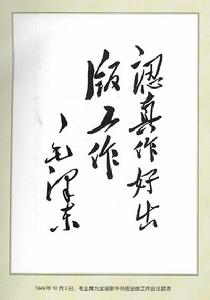 認真作好出
版工作
毛澤东
1949年10月3日，毛主席为全国新华书店出版工作会议题词